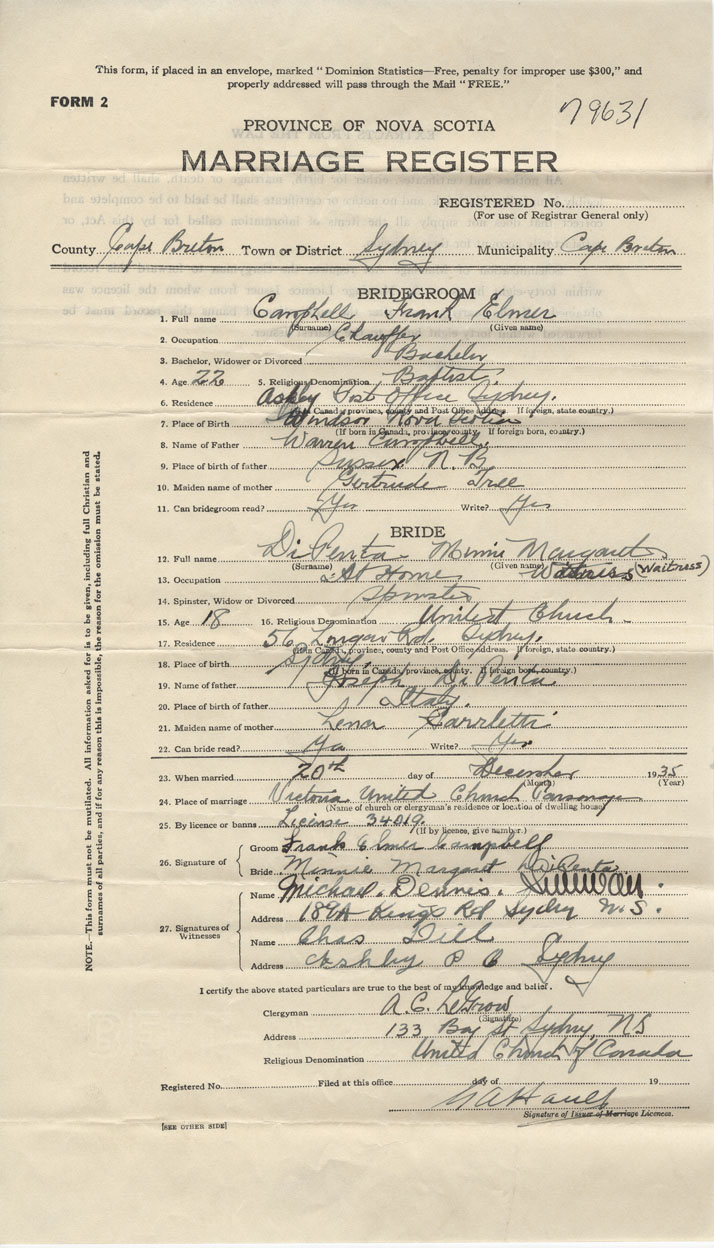 This form, if placed in an envelope, marked “Dominion Statistics—Free, penalty for improper use $300,” and
properly addressed will pass through the Mail “FREE.”
FORM 2
79631
PROVINCE OF NOVA SCOTIA
MARRIAGE REGISTER
REGISTERED No.
(For use of Registrar General only)
County Cape Breton Town or District Sydney Municipality Cape Breton
BRIDEGROOM
1. Full name Campbell Frank Elmer
(Surname) (Given name)
2. Occupation Chauffer
3. Bachelor, Widower or Divorced Bachelor
4. Age 22 5. Religious Denomination Baptist
6. Residence Ashby Post Office Sydney.
(If in Canada, province, county and Post Office address. If foreign, state country.)
7. Place of Birth Windsor Nova Scotia
(If born in Canada, province, county. If foreign born, country.)
8. Name of Father Warren Campbell
9. Place of birth of father Sussex N. B.
10. Maiden name of mother Gertrude
11. Can bridegroom read? Yes Write? Yes
BRIDE
12. Full name DiPenta Minnie Margaret
(Surname) (Given name)
13. Occupation At Home Waitress (Waitress)
14. Spinster, Widow or Divorced Spinster
15. Age 18 16. Religious Denomination United Church
17. Residence 56 Rd. Sydney.
(If in Canada, province, county and Post Office address. If foreign, state country.)
18. Place of birth Sydney
(If born in Canada, province, county. If foreign born, country.)
19. Name of father Joseph DiPenta
20. Place of birth of father Italy.
21. Maiden name of mother Lena
22. Can bride read? Yes Write? Yes
23. When married 20th day of December 1935
(Month) (Year)
24. Place of marriage Victoria United Church Parsonage
(Name of church or clergyman's residence or location of dwelling house)
25. By licence or banns License 34019.
(If by licence, give number.)
26. Signature of
Groom Frank Elmer Campbell
Bride Minnie Margaret DiPenta
27. Signatures of Witnesses
Name Michael Dennis.
Address 189A Kings Rd Sydney N.S.
Name Chas Dill
Address Ashby P O Sydney
I certify the above stated particulars are true to the best of my knowledge and belief.
Clergyman A. C.
(Signature)
Address 133 Bay St Sydney, NS
Religious Denomination United Church of Canada
Registered No. Filed at this office day of 19
Signature of Issuer of Marriage Licences.
[SEE OTHER SIDE]
NOTE.—This form must not be mutilated. All information asked for is to be given, including full Christian and
surnames of all parties, and if for any reason this is impossible, the reason for the omission must be stated.